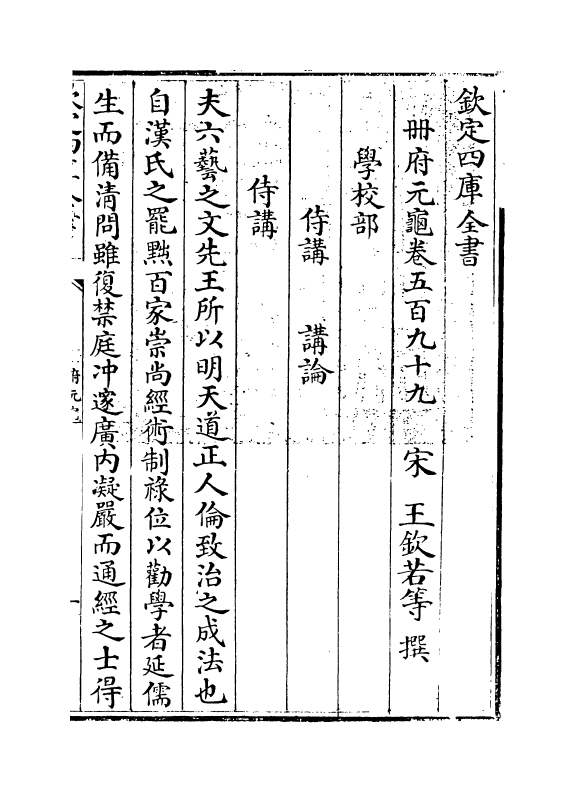 欽定四庫全書
冊府元龜卷五百九十九 宋 王欽若等 撰
學校部
侍講 講論
侍講
夫六藝之文先王所以明天道正人倫致治之成法也
自漢氏之罷黜百家崇尚經術制祿位以勸學者延儒
生而備清問雖復禁庭冲邃廣内凝嚴而通經之士得